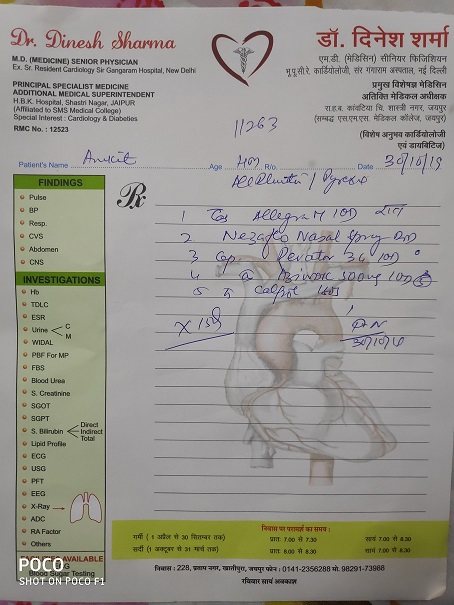 Dr. Dinesh Sharma
M.D. (MEDICINE) SENIOR PHYSICIAN
Ex. Sr. Resident Cardiology Sir Gangaram Hospital, New Delhi
PRINCIPAL SPECIALIST MEDICINE
ADDITIONAL MEDICAL SUPERINTENDENT
H.B.K. Hospital, Shastri Nagar, JAIPUR
(Affiliated to SMS Medical College)
Special Interest : Cardiology & Diabeties
RMC No. : 12523
डॉ. दिनेश शर्मा
एम.डी. (मेडिसिन) सीनियर फिजिशियन
भू.पू.सी.रे. कार्डियोलॉजी, सर गंगाराम अस्पताल, नई दिल्ली
प्रमुख विशेषज्ञ मेडिसिन
अतिरिक्त मेडिकल अधीक्षक
रा.ह.ब. कांवटिया चि. शास्त्री नगर, जयपुर
(सम्बद्ध एस.एम.एस. मेडिकल कॉलेज, जयपुर)
(विशेष अनुभव कार्डियोलॉजी
एवं डायबिटिज)
11263
Patient's Name Ankit Age R/o. Date 30/10/19
Rx
1 Allegra M 10D रात
2 Nasal Spray
3 Cap 10D
4 500mg 10D 5
5 Calpol
FINDINGS
Pulse
BP
Resp.
CVS
Abdomen
CNS
INVESTIGATIONS
Hb
TDLC
ESR
Urine C M
WIDAL
PBF For MP
FBS
Blood Urea
S. Creatinine
SGOT
SGPT
S. Bilirubin Direct Indirect Total
Lipid Profile
ECG
USG
PFT
EEG
X-Ray
ADC
RA Factor
Others
AVAILABLE
Blood Sugar Testing
निवास पर परामर्श का समय :
गर्मी (1 अप्रैल से 30 सितम्बर तक) प्रातः 7.00 से 7.30 सायं 7.00 से 8.30
सर्दी (1 अक्टूबर से 31 मार्च तक) प्रातः 7.00 से 8.30 सायं 6.00 से 8.30
निवास : 228, प्रताप नगर, खातीपुरा, जयपुर फोन : 0141-2356288 मो. 98291-73988
रविवार सायं अवकाश
POCO
SHOT ON POCO F1